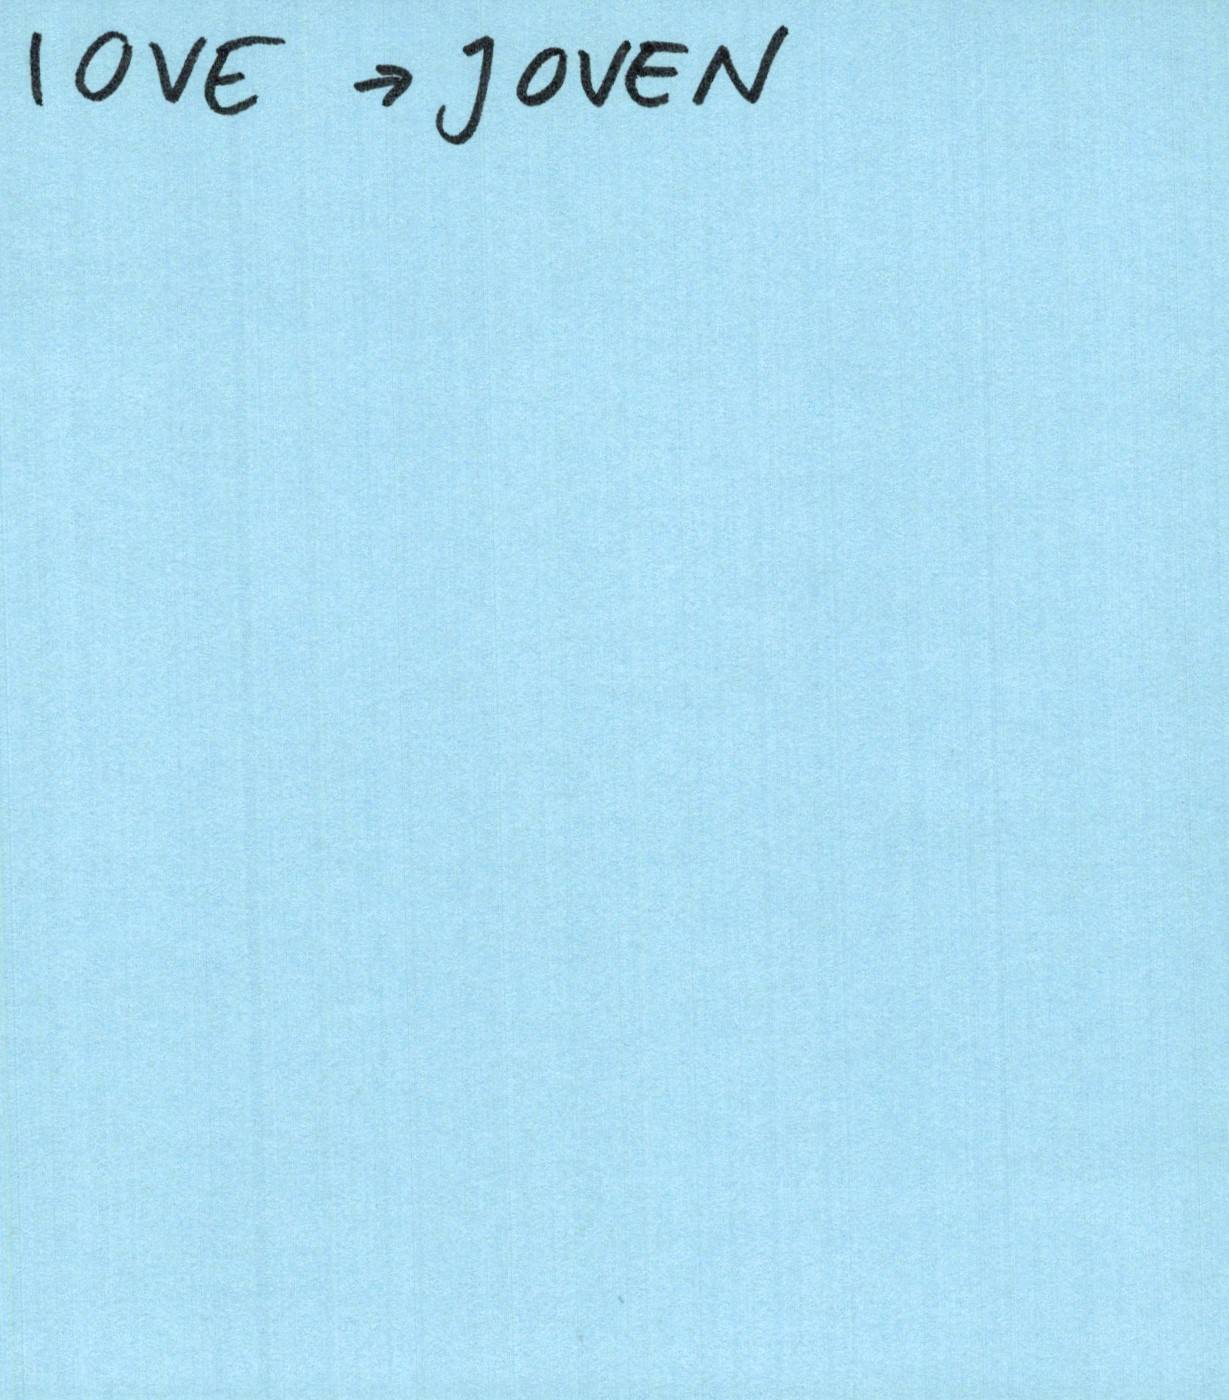 IOVE → JOVEN